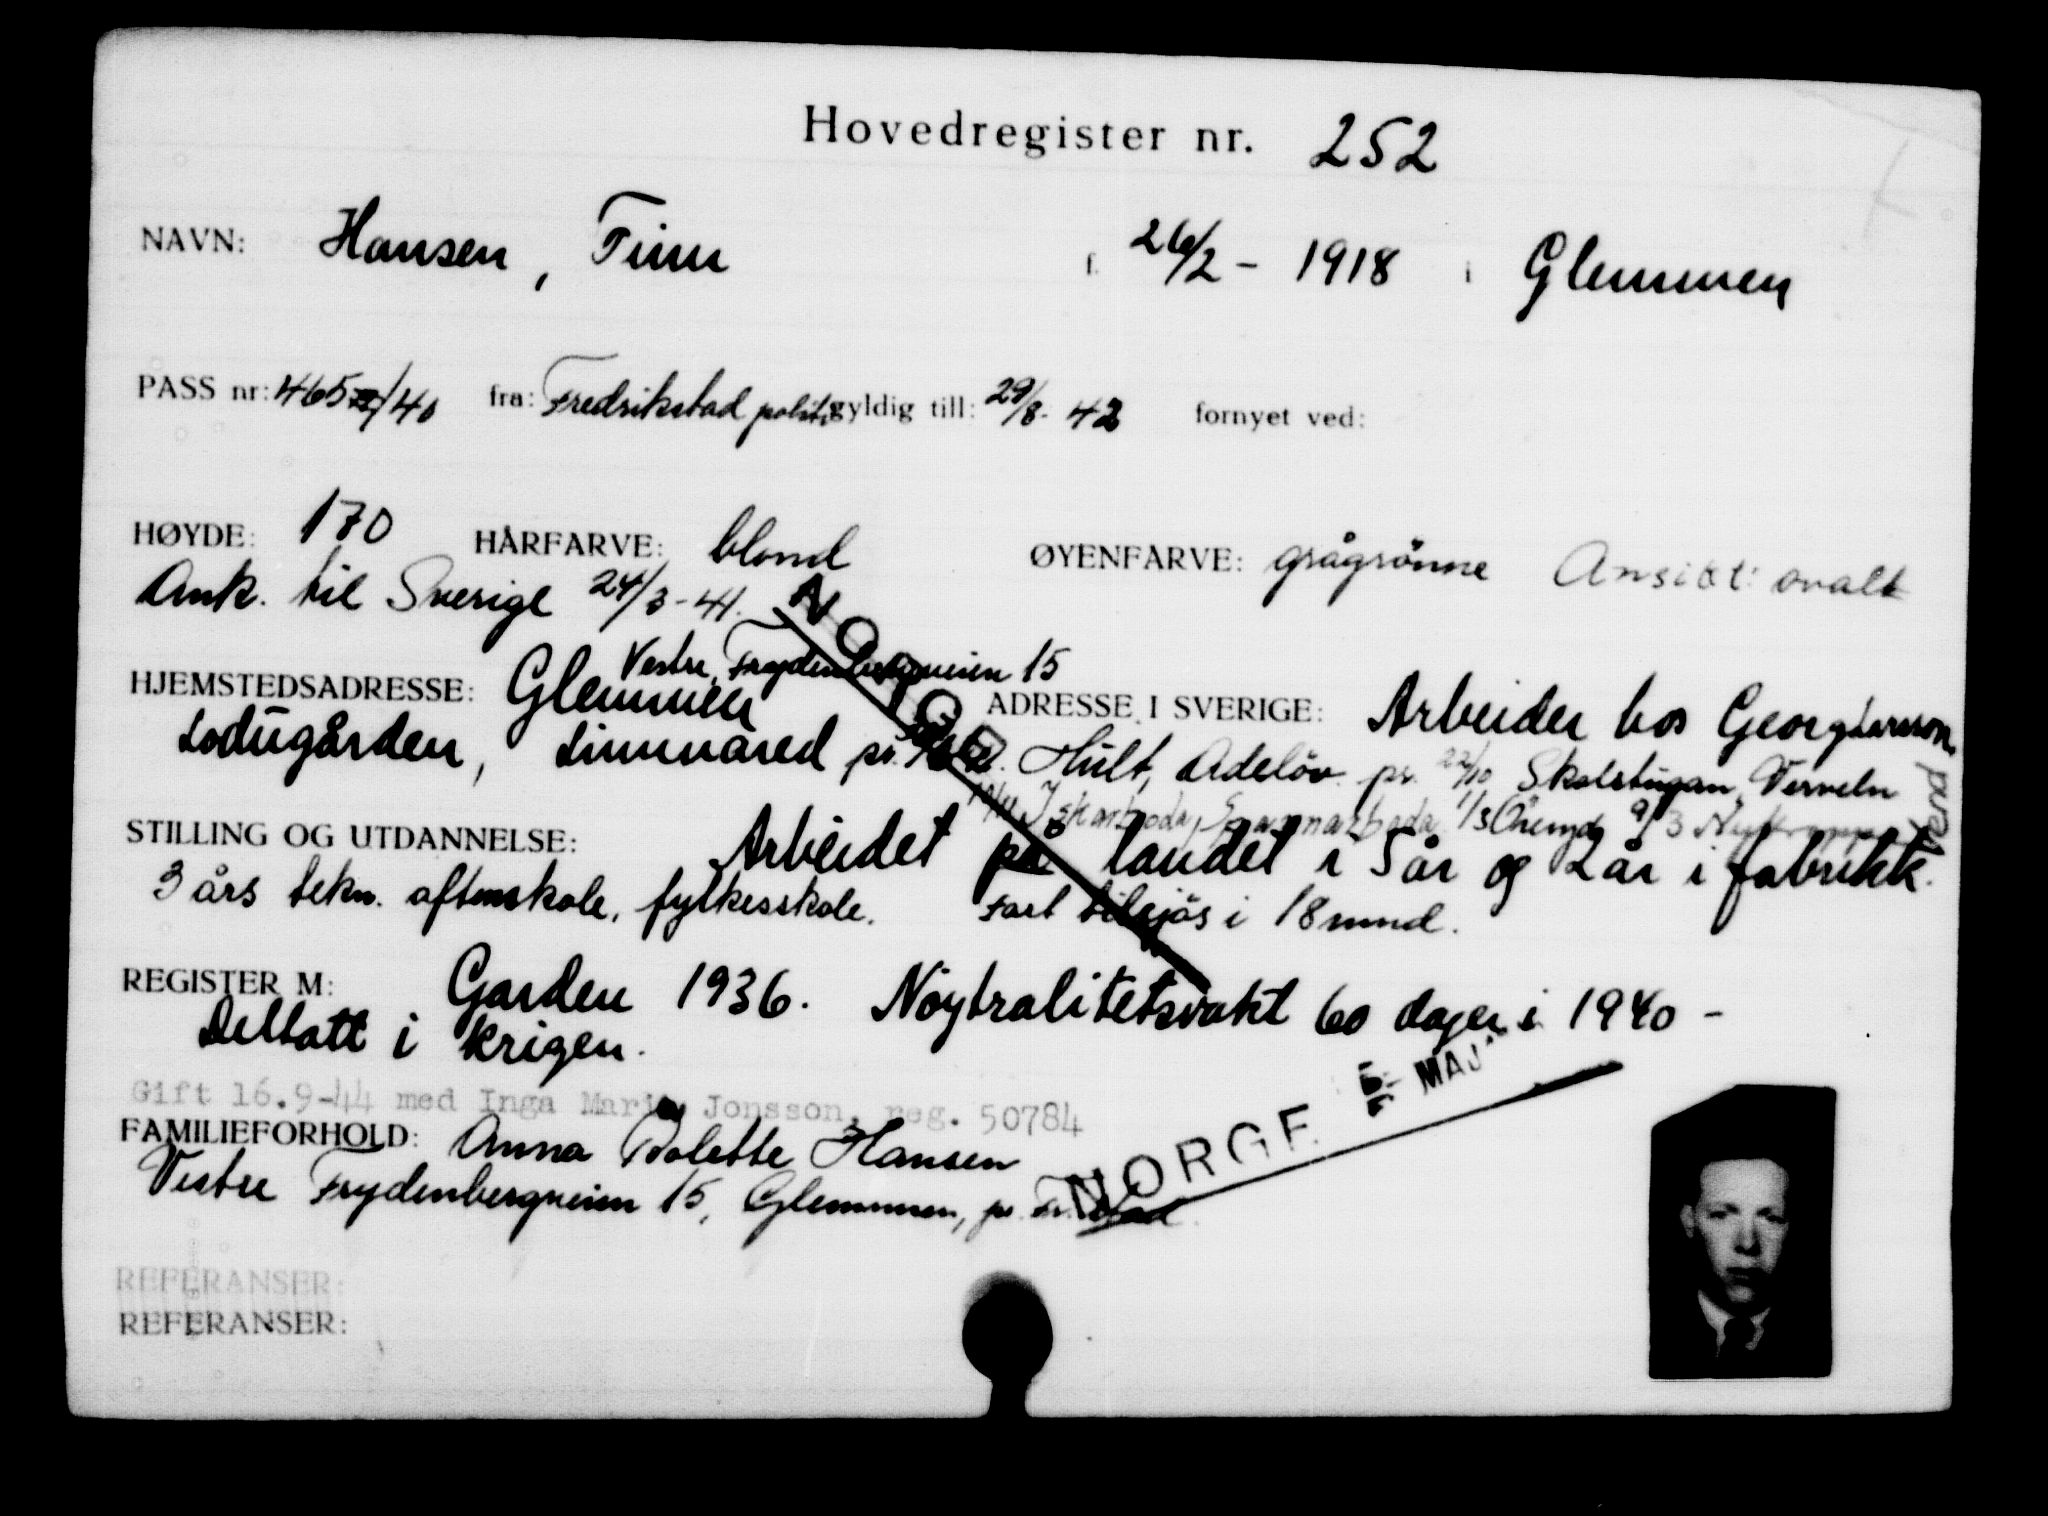 Hovedregister nr. 252
NAVN: Hansen, Finn f. 26/2 - 1918 i Glemmen
PASS nr: 465 /40 fra: Fredrikstad politi gyldig till: 29/8- 42 fornyet ved:
HØYDE: 170 HÅRFARVE: blond ØYENFARVE: grågrönne Ansikt: ovalt
Ank. til Sverige 24/3-41.
Vestre Frydenbergveien 15
HJEMSTEDSADRESSE: Glemmen ADRESSE I SVERIGE: Arbeider hos Georg Larsson,
Ladugården, Limmared pr. Hult, Ardelöv pr. 22/10 Skolstugan, Verveln
1/3 9/3
STILLING OG UTDANNELSE: Arbeidet på landet i 5 år og 2 år i fabrikk.
3 års tekn. aftenskole, fylkesskole. Fart tilsjös i 18 mnd.
REGISTER M: Garden 1936. Nöytralitetsvakt 60 dager i 1940 -
Deltatt i krigen.
MAJ
Gift 16.9-44 med Inga Maria Jonsson, reg. 50784
NORGE
FAMILIEFORHOLD: Anna Bolette Hansen
Vestre Frydenbergveien 15, Glemmen, pr. Fr.stad.
REFERANSER:
REFERANSER: